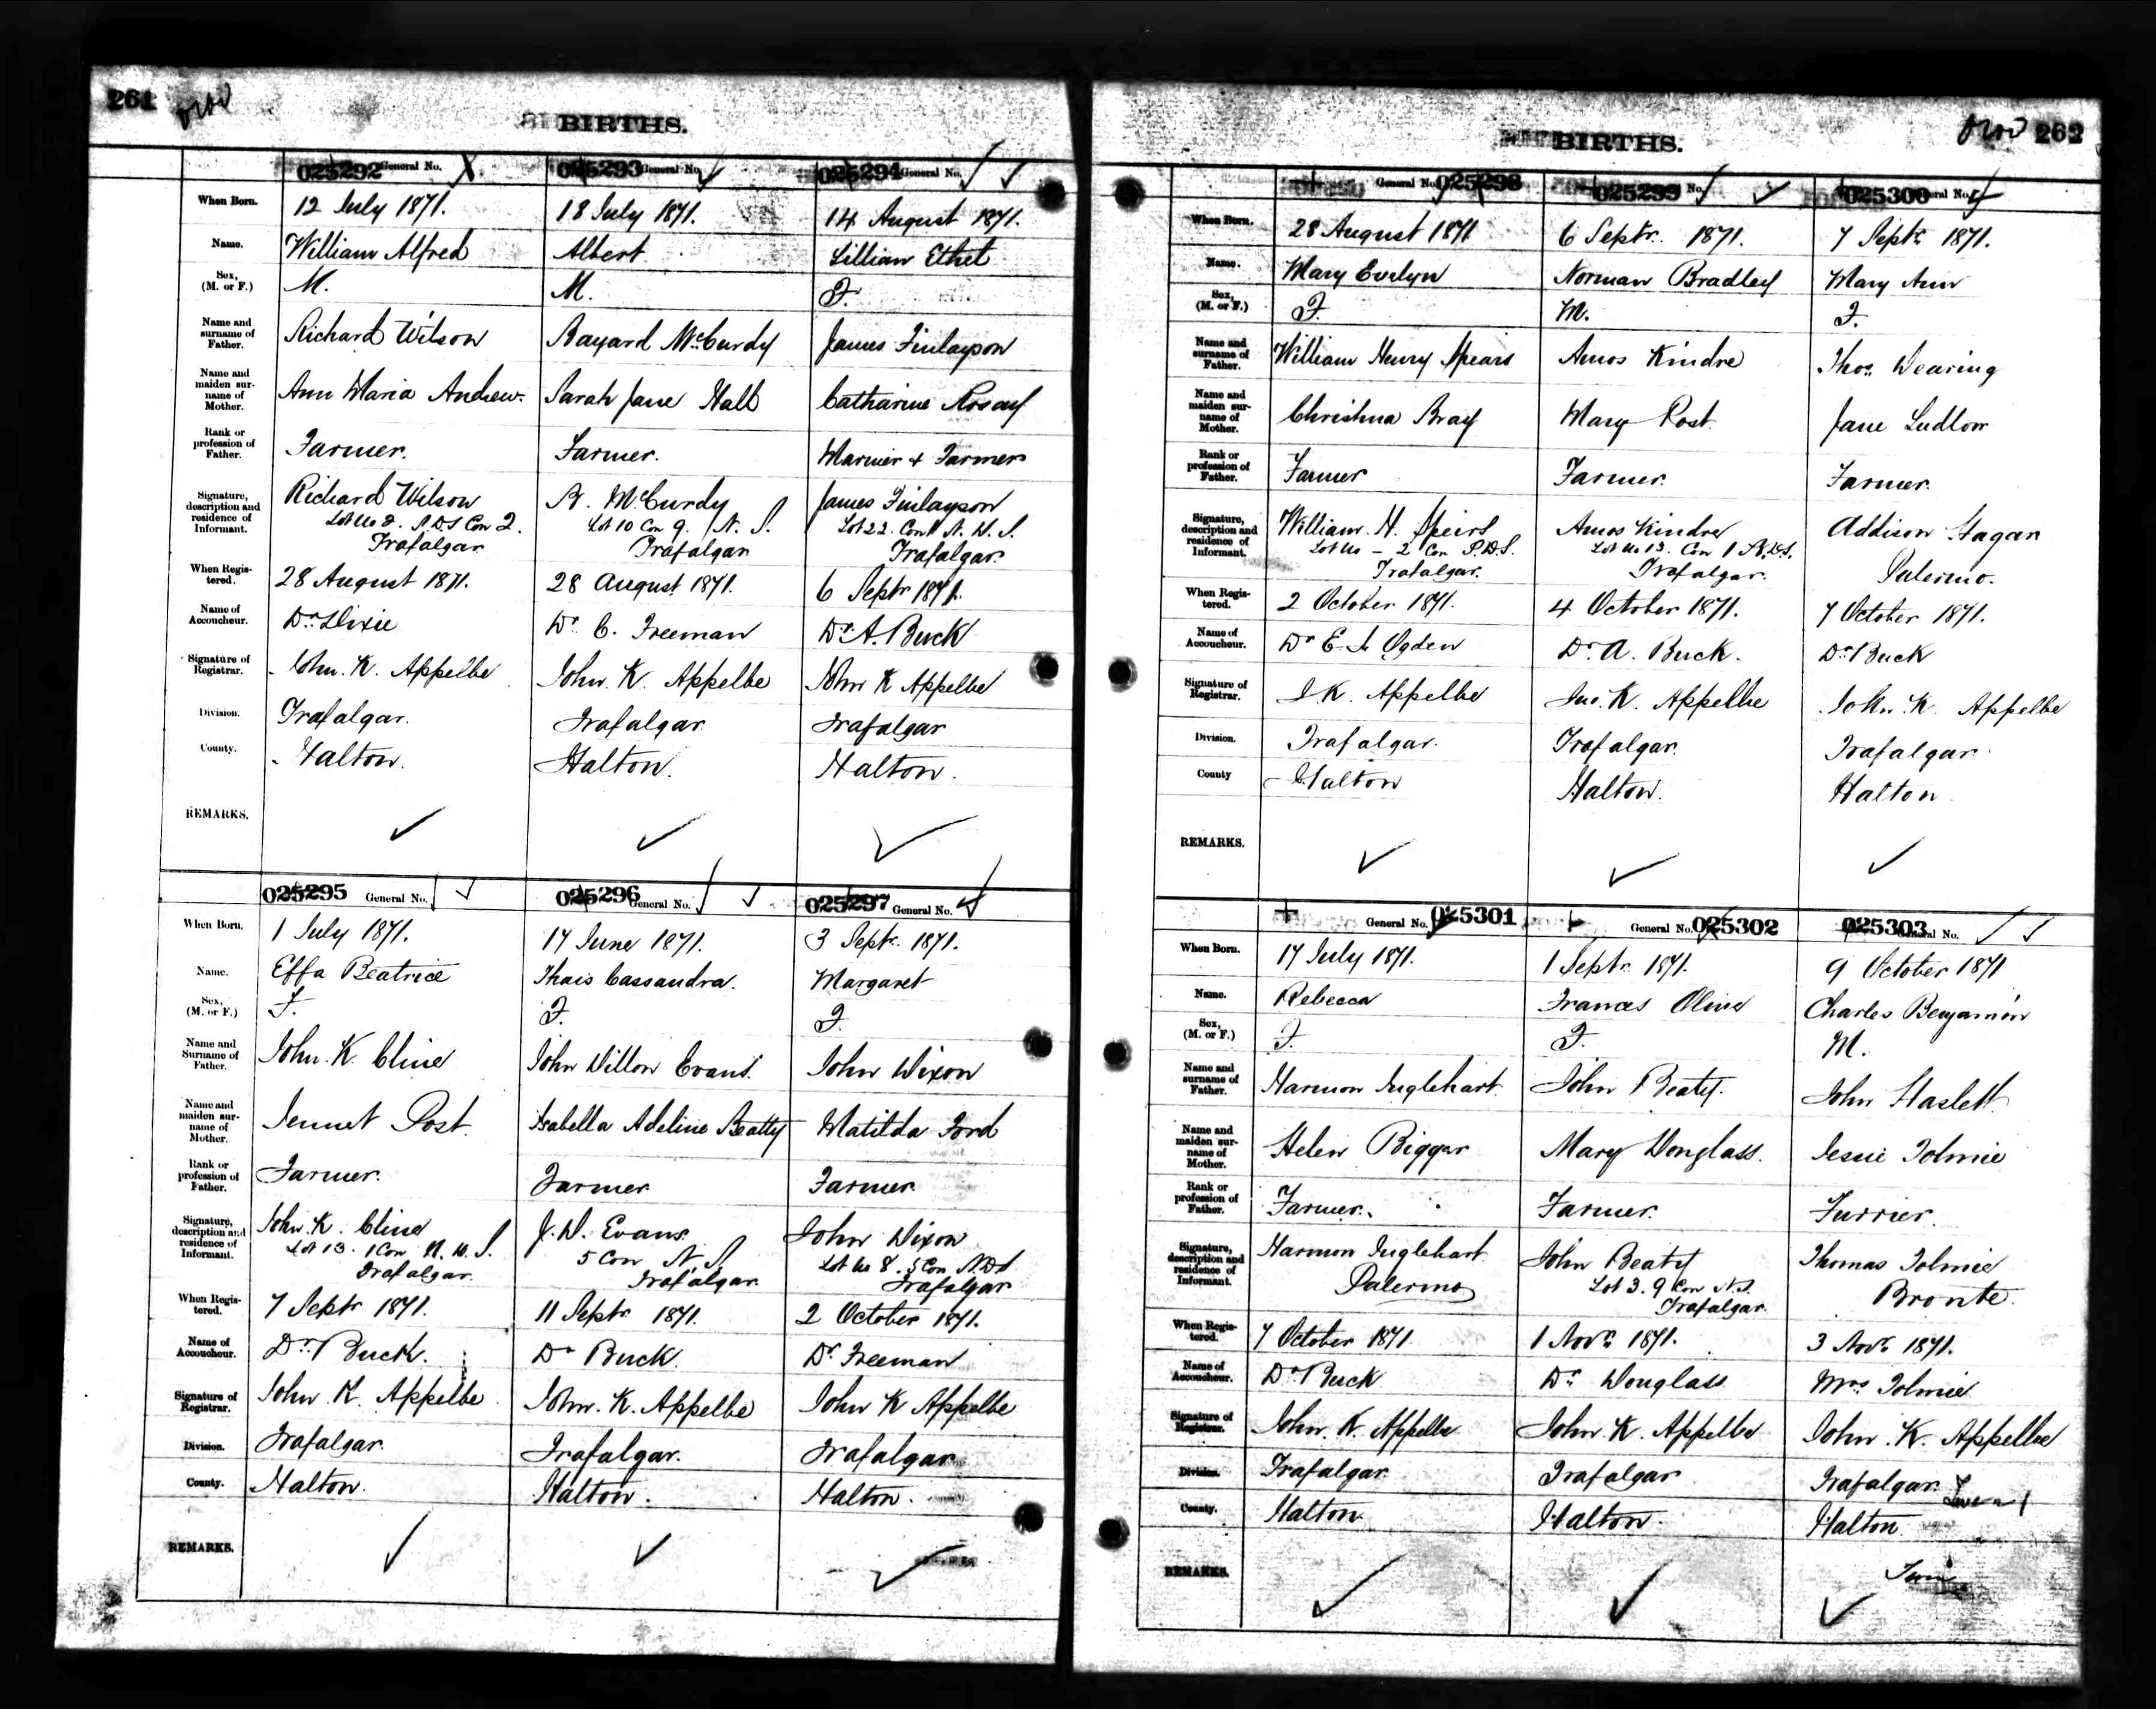 261
BIRTHS.
025292 General No. 025293 General No. 025294 General No.
When Born. 12 July 1871. 18 July 1871. 14 August 1871.
Name. William Alfred Albert Lillian Ethel
Sex, (M. or F.) M. M. F.
Name and surname of Father. Richard Wilson Bayard McCurdy James Finlayson
Name and maiden surname of Mother. Ann Maria Andrew. Sarah Jane Hall Catharine
Rank or profession of Father. Farmer. Farmer. Mariner & Farmer
Signature, description and residence of Informant. Richard Wilson B. McCurdy James Finlayson
Lot No 2. N.D.S Con 2. Lot 10 Con 9. N. S. Lot 22. Con 1 N. D. S.
Trafalgar Trafalgar Trafalgar.
When Registered. 28 August 1871. 28 August 1871. 6 Septr 1871.
Name of Accoucheur. Dr Dixie Dr C. Freeman Dr A. Buck
Signature of Registrar. John. K. Appelbe John. K. Appelbe John K Appelbe
Division. Trafalgar. Trafalgar Trafalgar
County. Halton. Halton. Halton.
REMARKS.
025295 General No. 025296 General No. 025297 General No.
When Born. 1 July 1871. 17 June 1871. 3 Septr. 1871.
Name. Effa Beatrice Thais Cassandra. Margaret
Sex, (M. or F.) F. F. F.
Name and Surname of Father. John. K. Cline John Dillon Evans. John Dixon
Name and maiden surname of Mother. Jennet Post. Isabella Adeline Beatty Matilda Ford
Rank or profession of Father. Farmer. Farmer Farmer
Signature, description and residence of Informant. John. K. Cline J. D. Evans John Dixon
Lot 13. 1 Con N. D. S. 5 Con N. S. Lot No 8. 5 Con N.D.S
Trafalgar. Trafalgar Trafalgar
When Registered. 7 Septr 1871. 11 Septr 1871. 2 October 1871.
Name of Accoucheur. Dr. Buck. Dr Buck. Dr Freeman
Signature of Registrar. John K. Appelbe John. K. Appelbe John K Appelbe
Division. Trafalgar. Trafalgar. Trafalgar
County. Halton. Halton. Halton.
REMARKS.
262
BIRTHS.
General No. 025298 025299 No. 025300 General No.
When Born. 28 August 1871 6 Septr. 1871. 7 Septr 1871.
Name. Mary Evelyn Norman Bradley Mary Ann
Sex, (M. or F.) F. M. F.
Name and surname of Father. William Henry Spears Amos Kindre Thos. Dearing
Name and maiden surname of Mother. Christina Bray Mary Post. Jane Ludlow
Rank or profession of Father. Farmer Farmer. Farmer.
Signature, description and residence of Informant. William. H. Speirs Amos Kindre Addison Hagar
Lot No - 2 Con S.D.S. Lot No 13. Con 1 N.D.S. Palermo.
Trafalgar. Trafalgar.
When Registered. 2 October 1871. 4 October 1871. 7 October 1871.
Name of Accoucheur. Dr E. Ogden Dr. A. Buck. Dr Buck
Signature of Registrar. J. K. Appelbe Jno. K. Appelbe John. K. Appelbe
Division. Trafalgar. Trafalgar. Trafalgar
County Halton Halton. Halton
REMARKS.
General No. 025301 General No. 025302 025303 General No.
When Born. 17 July 1871. 1 Septr 1871. 9 October 1871
Name. Rebecca Frances Olive Charles Benjamin
Sex, (M. or F.) F. F. M.
Name and surname of Father. Harmon Inglehart John Beaty. John Haslett
Name and maiden surname of Mother. Helen Biggar Mary Douglass. Jessie Tolmie
Rank or profession of Father. Farmer. Farmer. Furrier.
Signature, description and residence of Informant. Harmon Inglehart John Beaty Thomas Tolmie
Palermo Lot 3. 9 Con N.S. Bronte.
Trafalgar
When Registered. 7 October 1871. 1 Novr 1871. 3 Novr 1871.
Name of Accoucheur. Dr Buck Dr Douglass Mrs Tolmie
Signature of Registrar. John. K. Appelbe John. K. Appelbe John. K. Appelbe
Division. Trafalgar Trafalgar Trafalgar
County. Halton Halton. Halton.
REMARKS. Twin